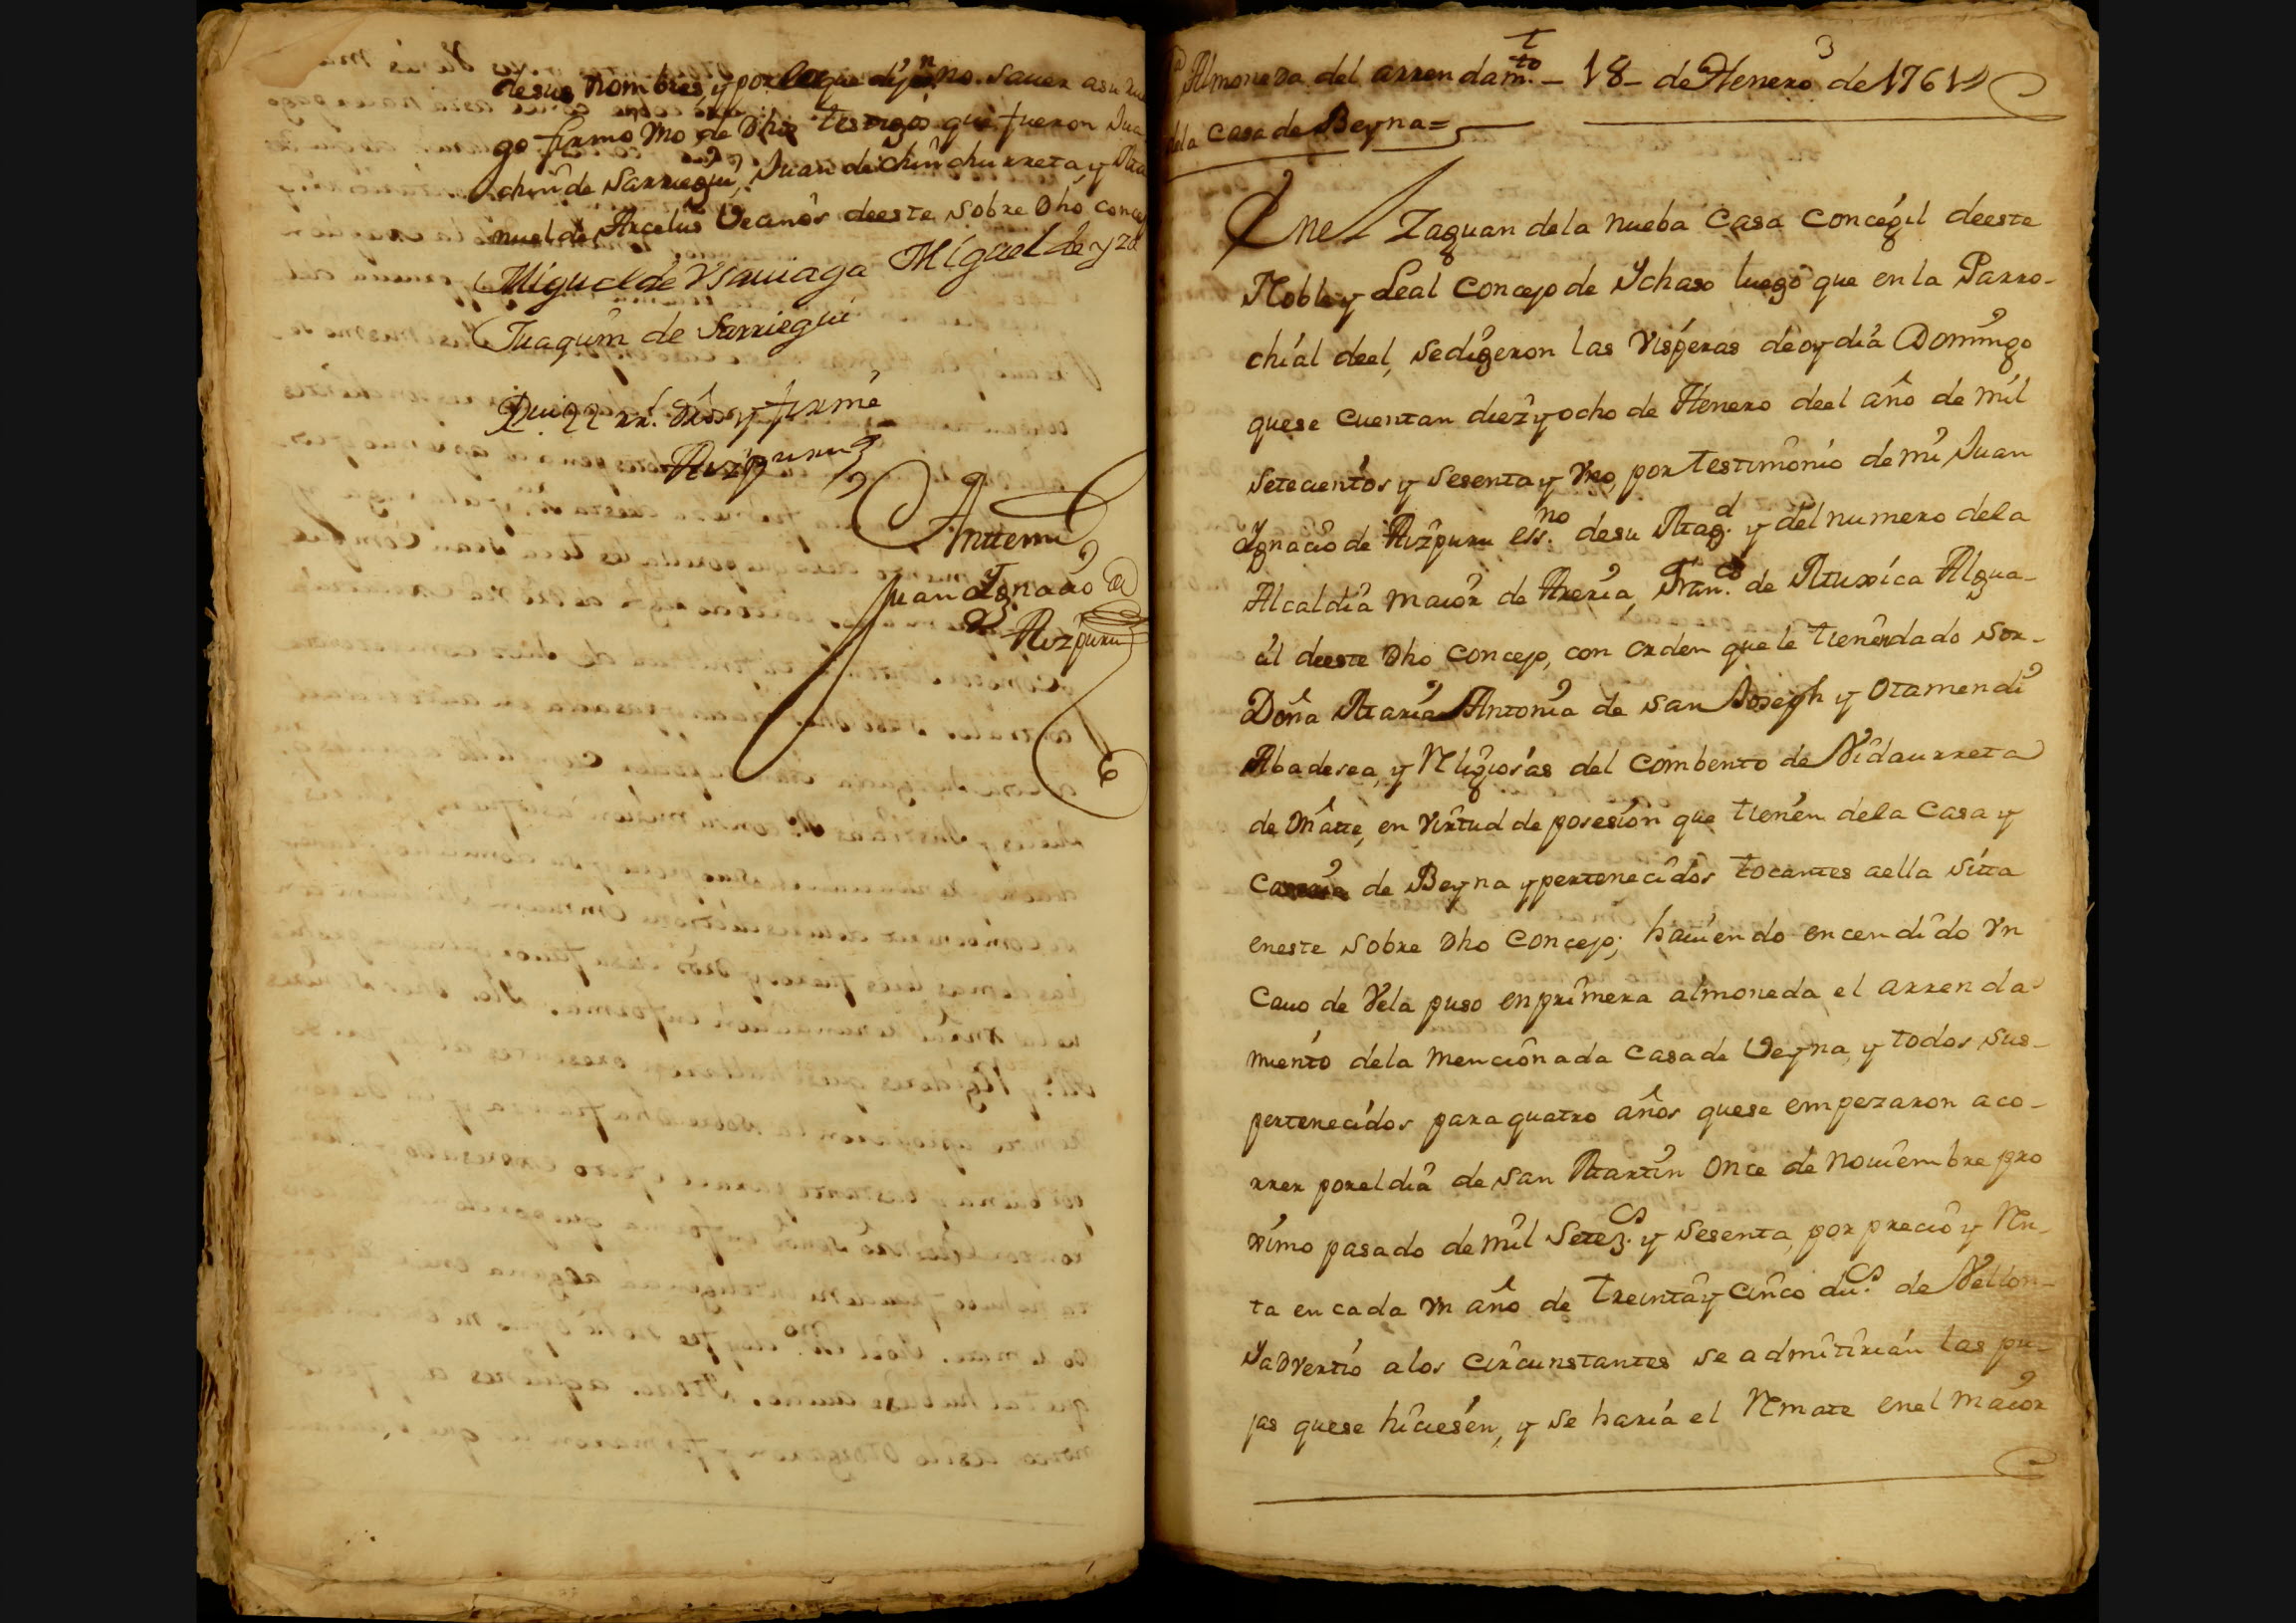 desus nombres, y por los que dijeⁿ no. saver asu rue
go firmo Vno de dhos testigos que fueron Jua
chin de Sarriegui, Juan de chinchurreta, y Ma
nuel de Arcelus Vecinos deeste sobre dho conce
Miguel de Ysauiaga Miguel de yza
Juaquin de Sarriegui
22 rr.ˢ y firmé
Aizpuru
Anttemi
Juan Ygnacio
de Aizpuru
3
Almoneda del arrendam.ᵗᵒ – 18 – de Henero de 1761
dela Casa de Beyna=
Enel Zaguan dela nueba Casa Concegil deeste
Noble y Leal Concejo de Ychaso luego que en la Parro-
chial deel, sedigeron las Visperas deoy dia Domingo
quese cuentan diez y ocho de Henero deel año de mil
setecientos y sesenta y Vno, por testimonio de mi Juan
Ygnacio de Aizpuru ess.ⁿᵒ desu Mag.ᵈ y del numero dela
Alcaldia maior de Areria, Fran.ᶜᵒ de Muxica Algua-
cil deeste dho concejo, con orden que le tienen dado sor-
Doña Maria Antonia de san Joseph y Otamendi
Abadesa, y Rligiosas del combento de Vidaurreta
de Oñatte, en Virtud de posesion que tienen dela Casa y
de Beyna y pertenecidos tocantes aella sitta
eneste sobre dho concejo; hauiendo encendido Vn
Cauo de Vela puso en primera almoneda el arrenda
miento dela mencionada Casa de Veyna, y todos sus-
pertenecidos para quatro años quese empezaron aco-
rrer porel dia de san Martin once de Nouiembre pro
ximo pasado de mil Setez.ˢ y sesenta, por precio y Rn-
ta en cada Vn año de treinta y cinco du.ˢ de Vellon-
Yadvertio alos circunstantes se admitirian las pu-
jas quese hiciesen, y se haria el Rmate enel maior